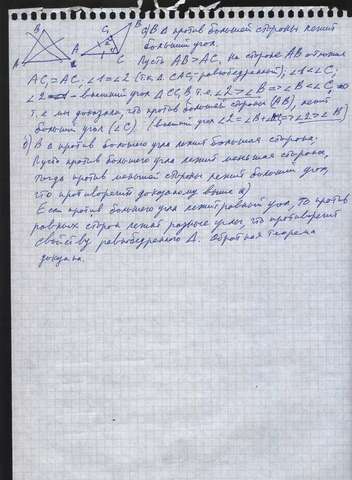 B C₁ B а) В Δ против большей стороны лежит
A A C больший угол.
Пусть AB > AC, на стороне AB отложим
AC₁ = AC, ∠1 = ∠2 (т.к. Δ CAC₁ - равнобедренный); ∠1 < ∠C,
∠2 - внешний угол Δ CC₁B, т.е. ∠2 > ∠B => ∠B < ∠C, =>
т.е. мы доказали, что против большей стороны (AB), лежит
больший угол (∠C). [внешний угол ∠2 = ∠B + => ∠2 > ∠B]
б) В Δ против большего угла лежит большая сторона.
Пусть против большего угла лежит меньшая сторона,
тогда против меньшей стороны лежит больший угол,
что противоречит доказанному выше а)
Если против большего угла лежит равный угол, то против
равных сторон лежат разные углы, что противоречит
свойству равнобедренного Δ. Обратная теорема
доказана.